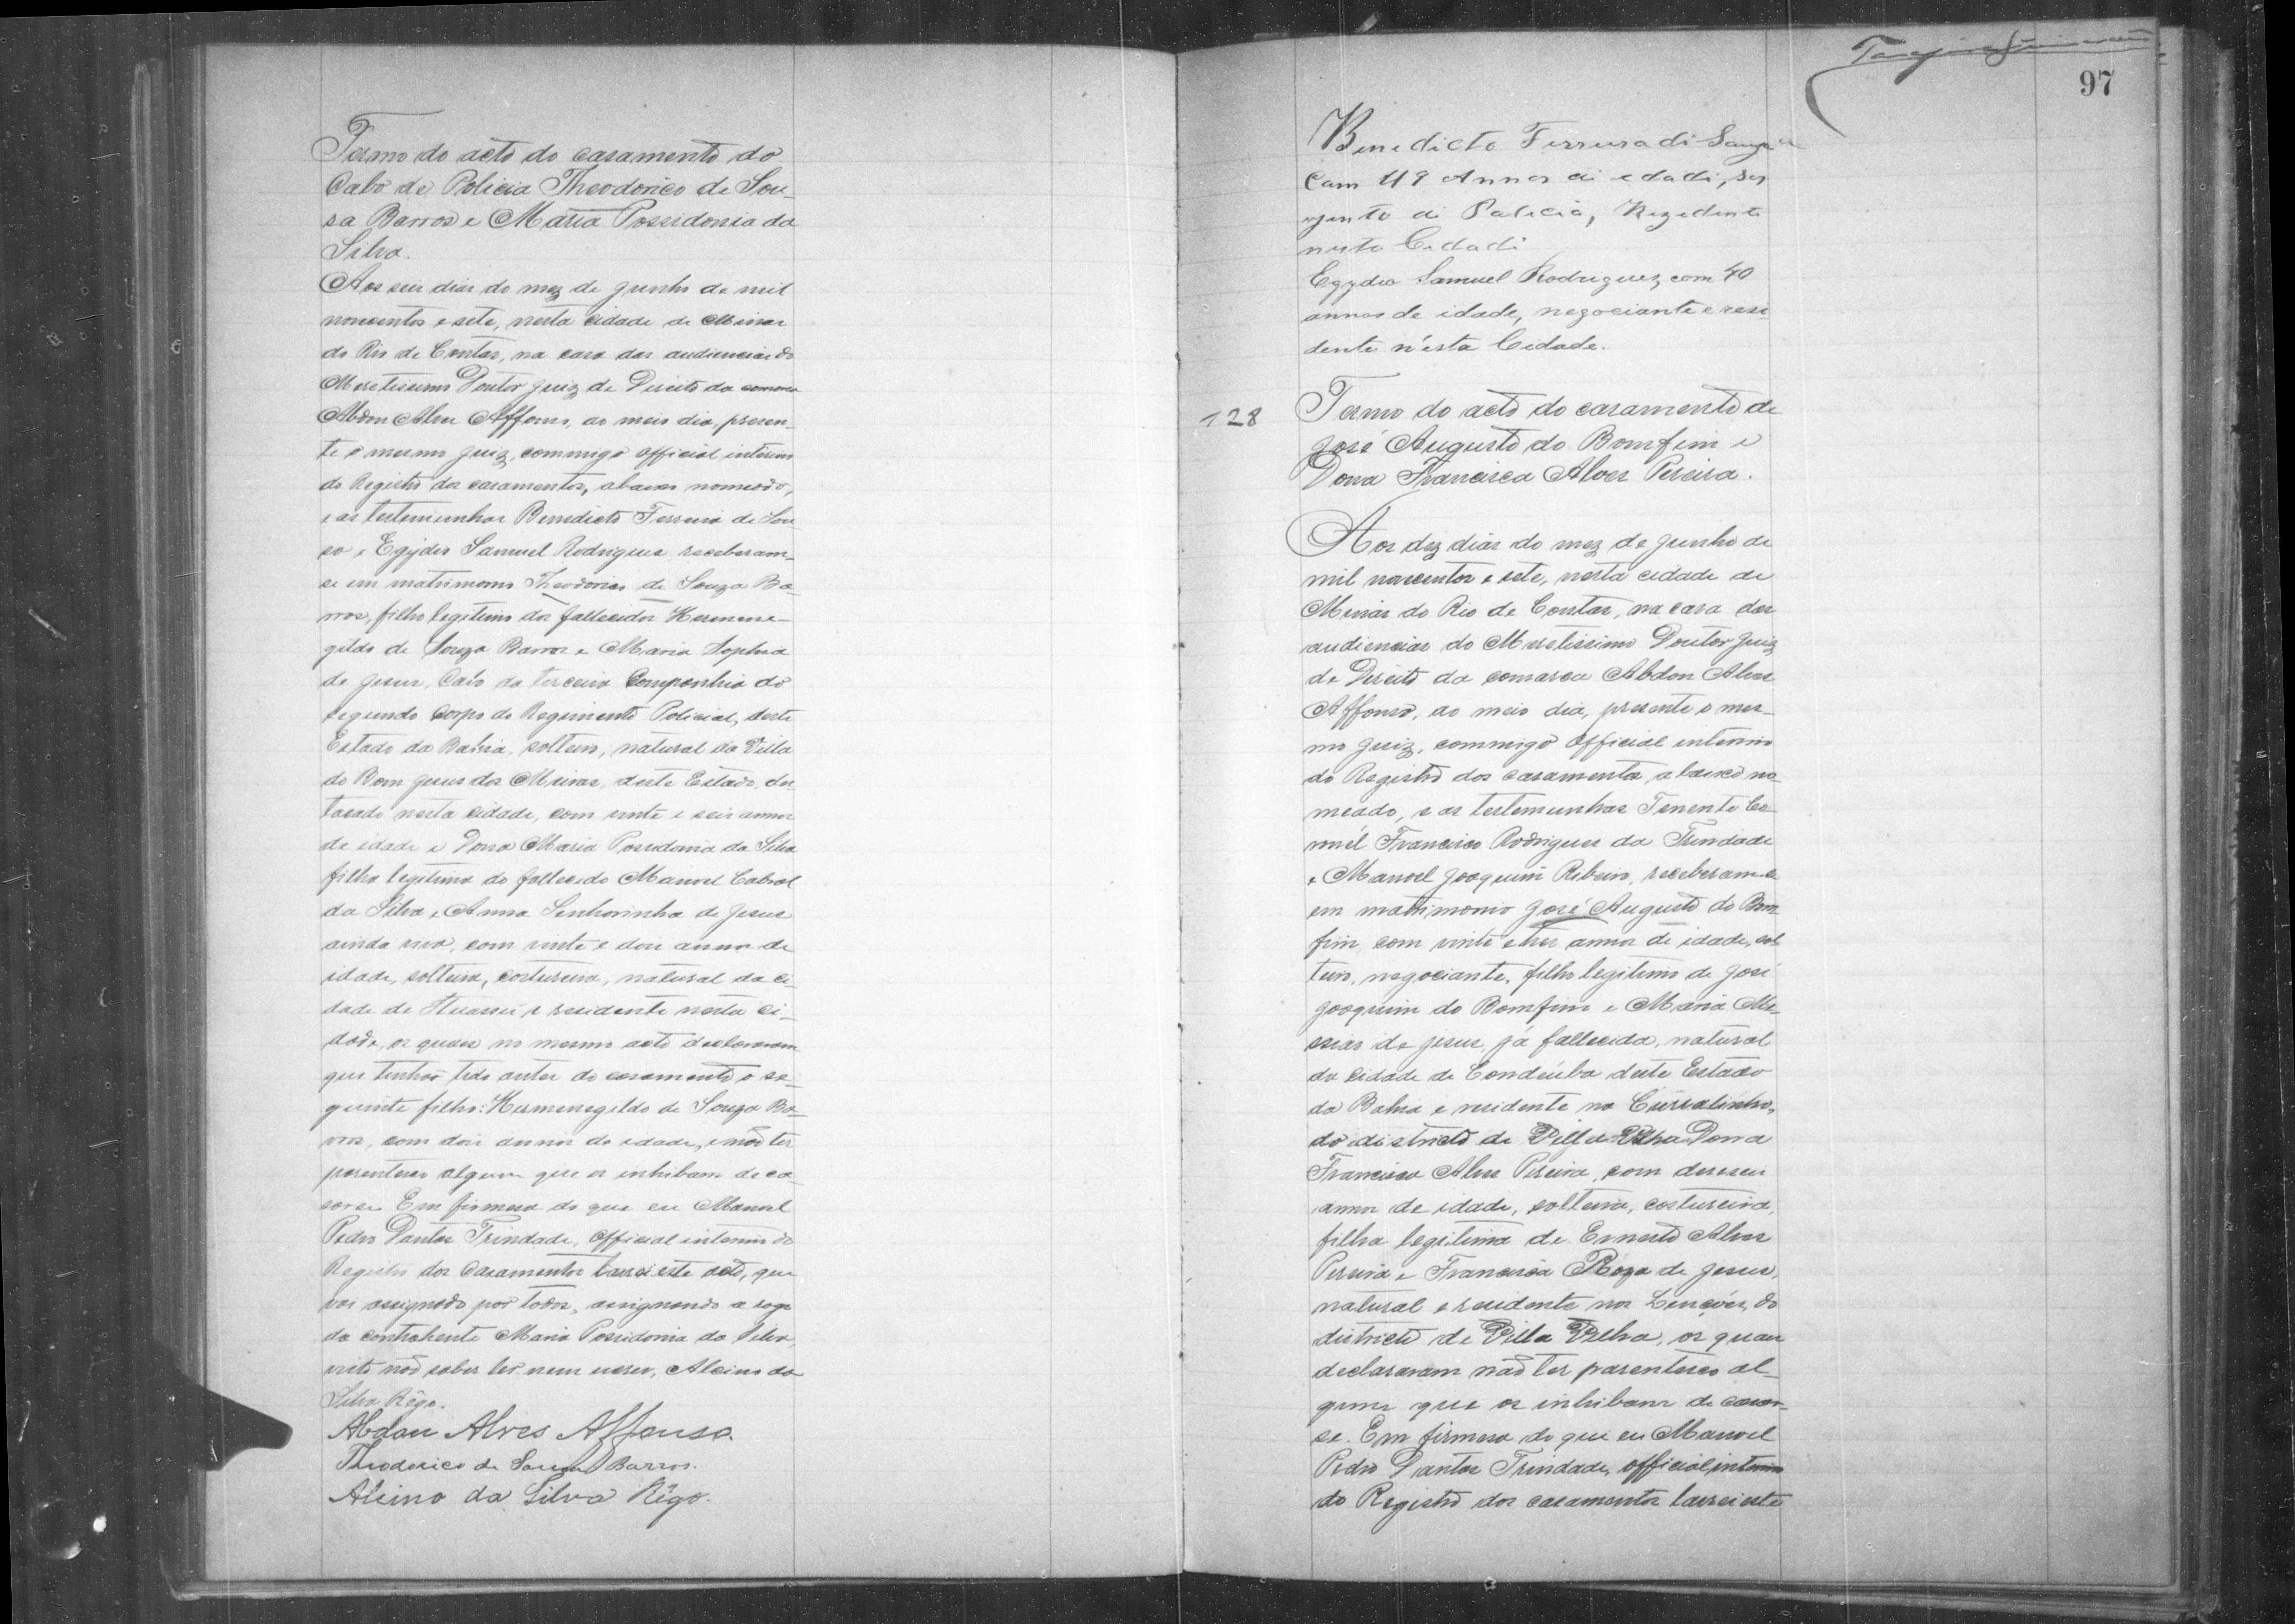 Termo do acto do casamento do
Cabo de Policia Theodorico de Sou-
sa Barros e Maria Possidonia da
Silva.
Aos seis dias do mez de Junho de mil
novecentos e sete, nesta cidade de Minas
do Rio de Contas, na casa das audiencias do
Meretissimo Doutor Juiz de Direito da comarca
Abdon Alves Affonso, ao meio dia, presen-
te o mesmo Juiz, commigo official interino
do Registro dos casamentos, abaixo nomeado,
e as testemunhas Benedicto Ferreira de Sou-
sa e Egydio Samuel Rodrigues receberam-
se em matrimonio Theodorico de Souza Ba-
rros, filho legitimo dos fallecidos Hermene-
gildo de Souza Barros e Maria Sophia
de Jesus, Cabo da terceira Companhia do
segundo corpo do Regimento Policial, deste
Estado da Bahia, solteiro, natural da Villa
do Bom Jesus dos Meiras, deste Estado, des
tacado nesta cidade, com vinte e seis annos
de idade e Dona Maria Possidonia da Silva
filha legitima do fallecido Manoel Cabral
da Silva e Anna Senhorinha de Jesus
ainda viva, com vinte e dois annos de
idade, solteira, costureira, natural da ci-
dade de Ituassú e residente nesta ci-
dade, os quaes no mesmo acto declararam
que tinham tido antes do casamento o se-
guinte filho: Hermenegildo de Souza Ba-
rros, com dois annos de idade, e não ter
parentesco algum que os inhibam de ca-
sarse. Em firmesa do que eu Manoel
Pedro Dantas Trindade, Official interino do
Registro dos Casamentos lavrei este acto, que
vai assignado por todos, assignando a rogo
da contrahente Maria Possidonia da Silva,
visto não saber ler nem escrever, Alcino da
Silva Rêgo.
Abdon Alves Affonso.
Theodorico de Souza Barros.
Alcino da Silva Rêgo.
97
Benedicto Ferreira di Souza
Com 49 Annos di edadi, ser
gento di Policia, Rezedente
nesta Cidadi
Egydio Samuel Rodrigues, com 40
annos de idade, negociante e resi
dente n'esta Cidade.
128
Termo do acto do casamento de
José Augusto do Bomfim e
Dona Francisca Alves Pereira.
Aos dez dias do mez de Junho de
mil novecentos e sete, nesta cidade de
Minas do Rio de Contas, na casa das
audiencias do Meretissimo Doutor Juiz
de Direito da comarca Abdon Alves
Affonso, ao meio dia, presente o mes-
mo Juiz, commigo Official interino
do Registro dos casamentos, abaixo no-
meado, e as testemunhas Tenente Co-
ronél Francisco Rodrigues da Trindade
e Manoel Joaquim Ribeiro, receberam-se
em matrimonio José Augusto do Bom-
fim, com vinte e tres annos de idade, sol
teiro, negociante, filho legitimo de José
Joaquim do Bomfim e Maria Me-
ssias de Jesus, já fallecida, natural
da cidade de Condeúba deste Estado
da Bahia e residente no Curralinho,
do districto de Villa Velha e Dona
Francisca Alves Pereira, com deseseis
annos de idade, solteira, costureira,
filha legitima de Ernesto Alves
Pereira e Francisca Roza de Jesus,
natural e residente nos Lençóes, do
districto de Villa Velha, os quaes
declararam não ter parentesco al-
gum que os inhibam de casar-
se. Em firmesa do que eu Manoel
Pedro Dantas Trindade, official interino
do Registro dos casamentos lavrei este